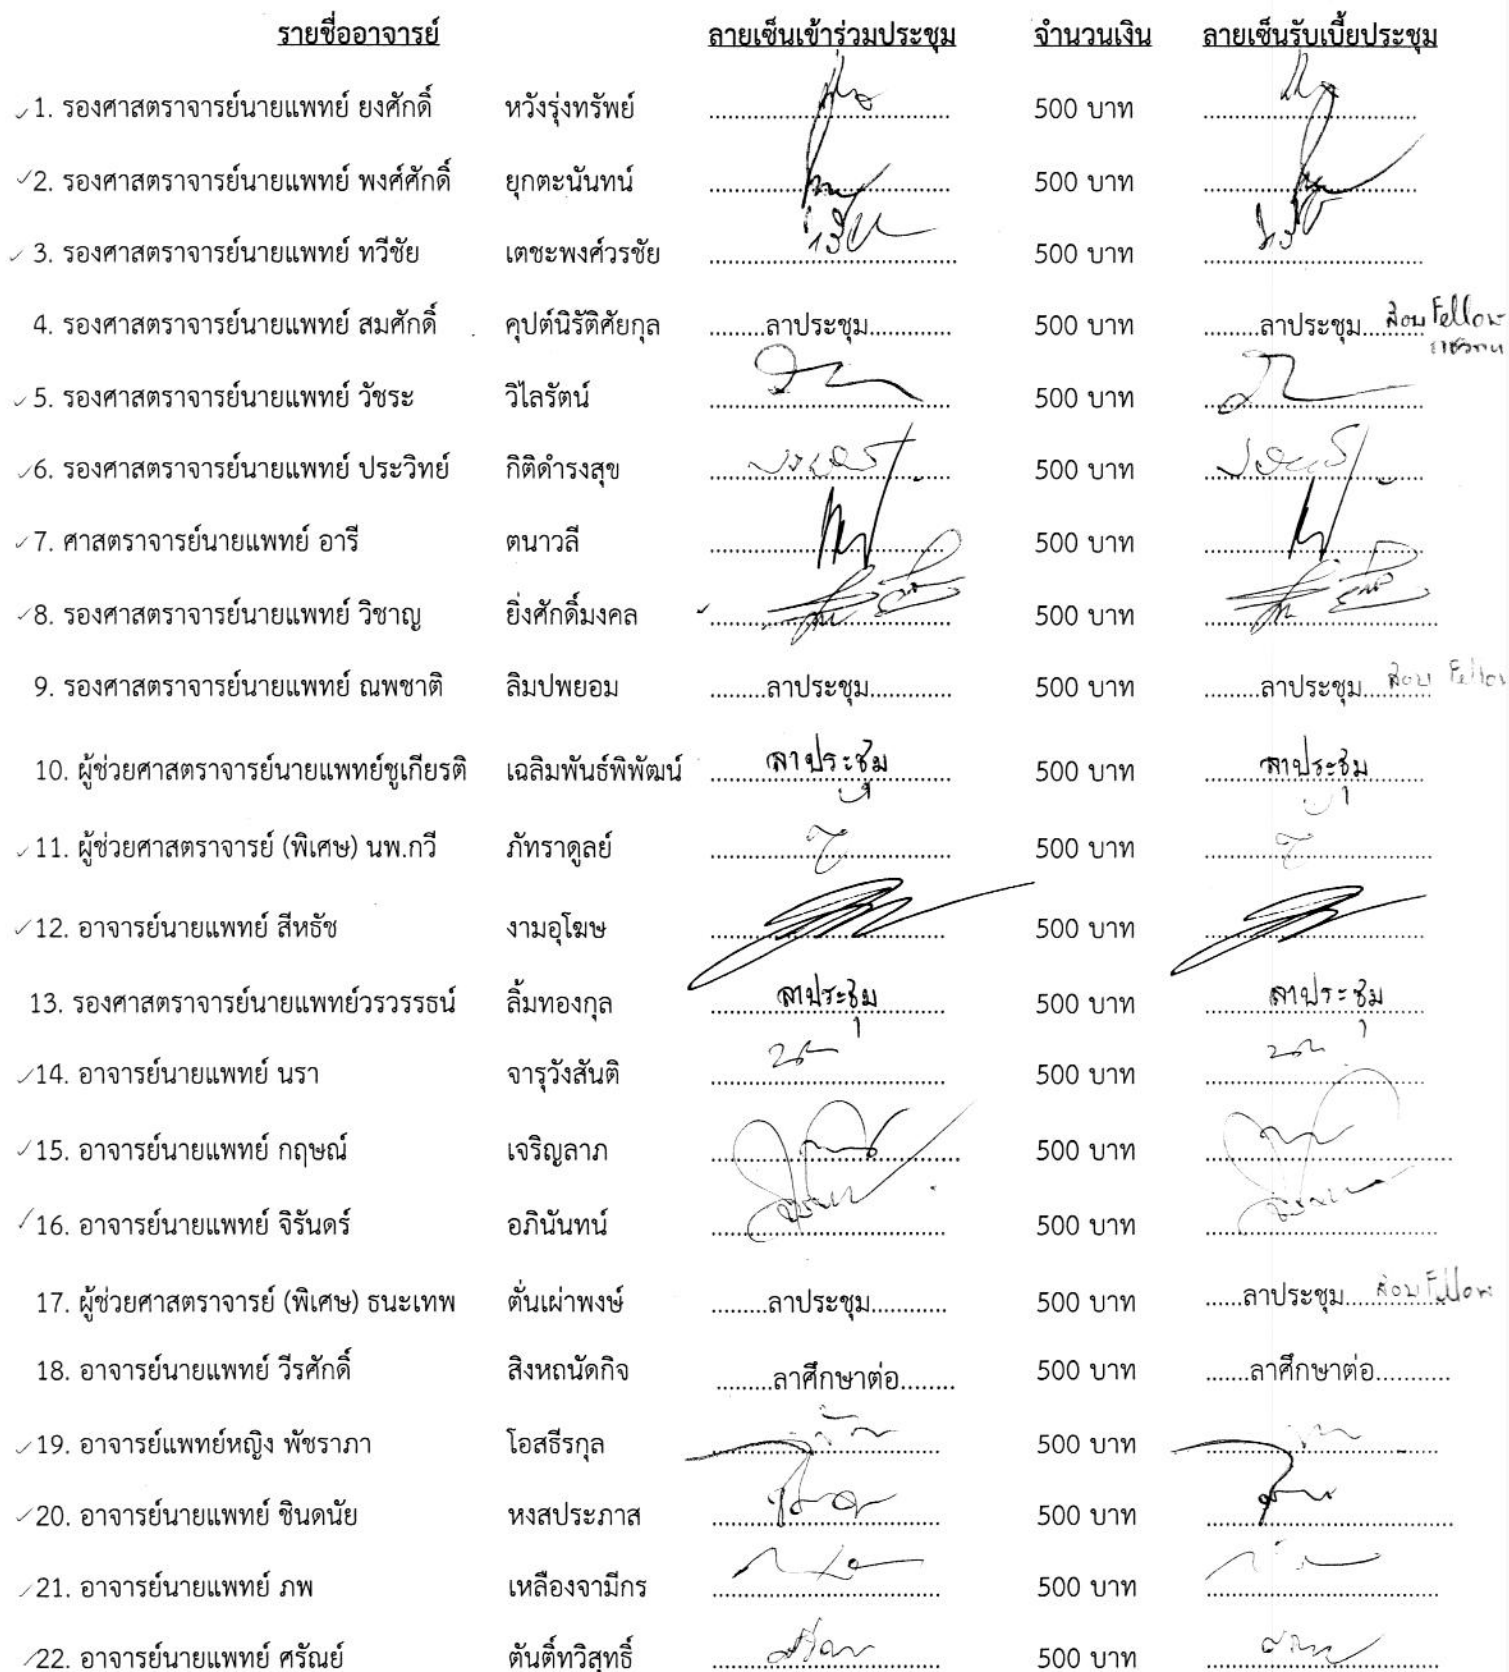 รายชื่ออาจารย์ ลายเซ็นเข้าร่วมประชุม จำนวนเงิน ลายเซ็นรับเบี้ยประชุม
1. รองศาสตราจารย์นายแพทย์ ยงศักดิ์ หวังรุ่งทรัพย์ 500 บาท
2. รองศาสตราจารย์นายแพทย์ พงศ์ศักดิ์ ยุกตะนันทน์ 500 บาท
3. รองศาสตราจารย์นายแพทย์ ทวีชัย เตชะพงศ์วรชัย 500 บาท
4. รองศาสตราจารย์นายแพทย์ สมศักดิ์ คุปต์นิรัติศัยกุล ลาประชุม 500 บาท ลาประชุม สอบ Fellow
5. รองศาสตราจารย์นายแพทย์ วัชระ วิไลรัตน์ 500 บาท
6. รองศาสตราจารย์นายแพทย์ ประวิทย์ กิติดำรงสุข 500 บาท
7. ศาสตราจารย์นายแพทย์ อารี ตนาวลี 500 บาท
8. รองศาสตราจารย์นายแพทย์ วิชาญ ยิ่งศักดิ์มงคล 500 บาท
9. รองศาสตราจารย์นายแพทย์ ณพชาติ ลิมปพยอม ลาประชุม 500 บาท ลาประชุม สอบ Fellow
10. ผู้ช่วยศาสตราจารย์นายแพทย์ชูเกียรติ เฉลิมพันธ์พิพัฒน์ ลาประชุม 500 บาท ลาประชุม
11. ผู้ช่วยศาสตราจารย์ (พิเศษ) นพ.กวี ภัทราดูลย์ 500 บาท
12. อาจารย์นายแพทย์ สีหธัช งามอุโฆษ 500 บาท
13. รองศาสตราจารย์นายแพทย์วรวรรธน์ ลิ้มทองกุล ลาประชุม 500 บาท ลาประชุม
14. อาจารย์นายแพทย์ นรา จารุวังสันติ 500 บาท
15. อาจารย์นายแพทย์ กฤษณ์ เจริญลาภ 500 บาท
16. อาจารย์นายแพทย์ จิรันดร์ อภินันทน์ 500 บาท
17. ผู้ช่วยศาสตราจารย์ (พิเศษ) ธนะเทพ ตั่นเผ่าพงษ์ ลาประชุม 500 บาท ลาประชุม สอบ Fellow
18. อาจารย์นายแพทย์ วีรศักดิ์ สิงหถนัดกิจ ลาศึกษาต่อ 500 บาท ลาศึกษาต่อ
19. อาจารย์แพทย์หญิง พัชราภา โอสธีรกุล 500 บาท
20. อาจารย์นายแพทย์ ชินดนัย หงสประภาส 500 บาท
21. อาจารย์นายแพทย์ ภพ เหลืองจามีกร 500 บาท
22. อาจารย์นายแพทย์ ศรัณย์ ตันติ์ทวิสุทธิ์ 500 บาท